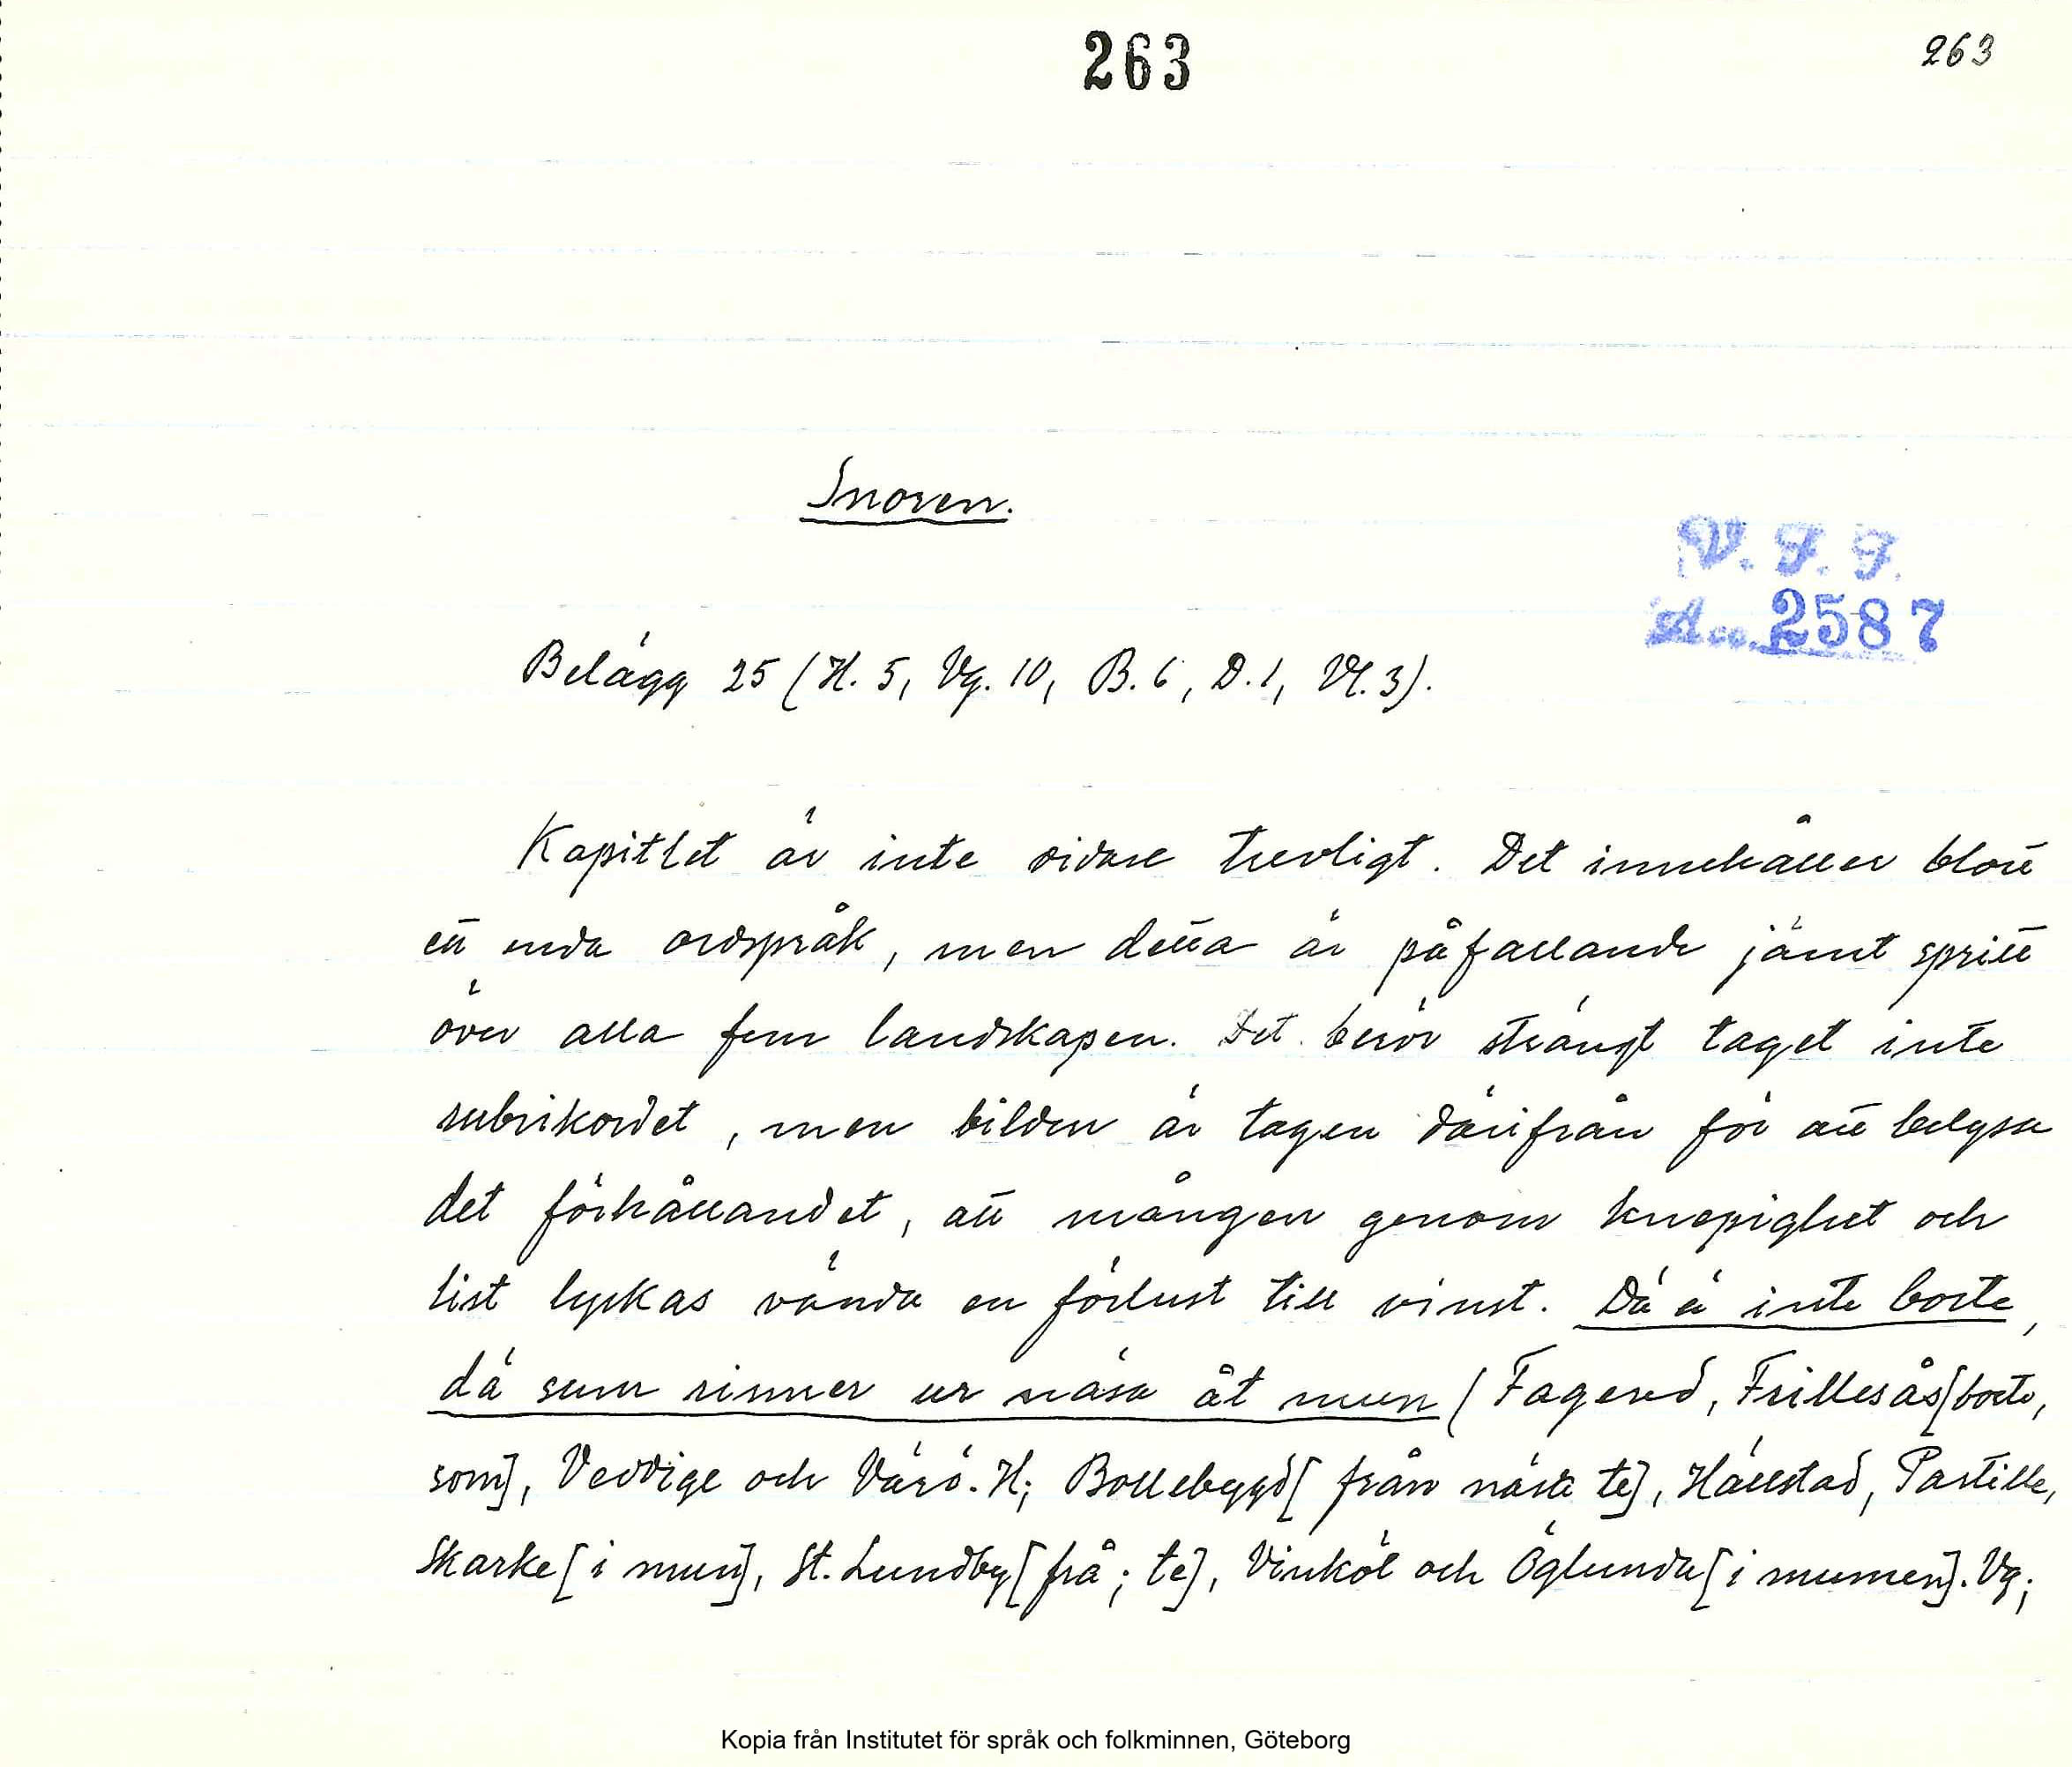 263
263
Snoren.
V. F. F.
Acc. 2587
Belägg 25 (H. 5, Vg. 10, B. 6, D. 1, Vl. 3).
Kapitlet är inte vidare trevligt. Det innehåller blott
ett enda ordspråk, men detta är påfallande jämt spritt
över alla fem landskapen. Det berör strängt taget inte
rubrikordet, men bilden är tagen därifrån för att belysa
det förhållandet, att mången genom knepighet och
list lyckas vända en förlust till vinst. Dä ä inte borte,
dä sum rinner ur näsa åt mun (Fagered, Frillesås [borto,
som], Veddige och Värö. H; Bollebygd [från näsa te], Hällstad, Partille,
Skarke [i mun], St. Lundby [frå; te], Vinköl och Öglunda [i munnen]. Vg;
Kopia från Institutet för språk och folkminnen, Göteborg